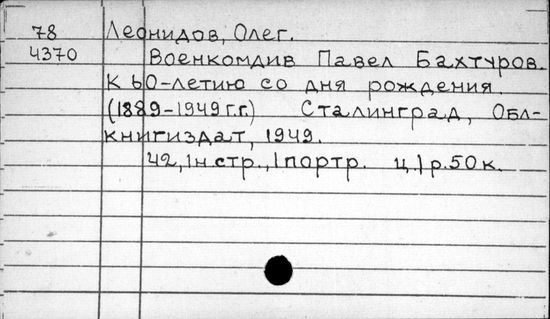 78 Леонидов, Олег.
4370 Военкомдив Павел Бахтуров.
К 60-летию со дня рождения.
(1889-1949 г.г.) Сталинград, Обл-
книгиздат, 1949.
42, 1н.стр., 1 портр. ц. 1 р. 50 к.